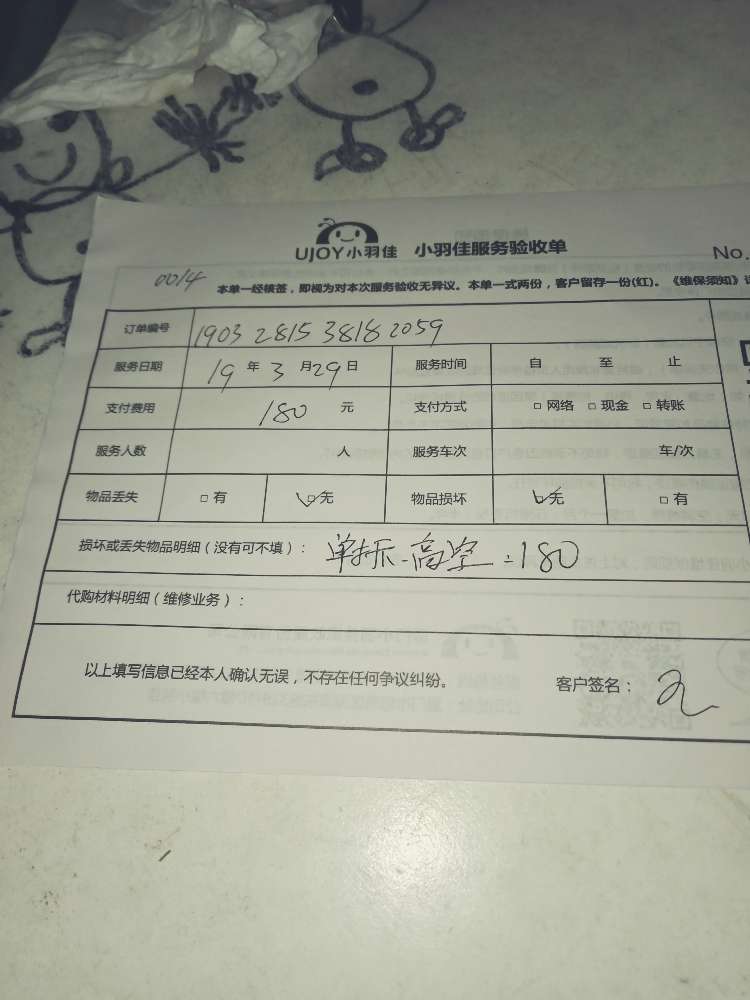 UJOY小羽佳 小羽佳服务验收单 No.
0014
本单一经核签，即视为对本次服务验收无异议。本单一式两份，客户留存一份(红)。《维保须知》
订单编号 1903 2815 3818 2059
服务日期 19 年 3 月 29 日 服务时间 自 至 止
支付费用 180 元 支付方式 □ 网络 □ 现金 □ 转账
服务人数 人 服务车次 车/次
物品丢失 □ 有 ☑ 无 物品损坏 ☑ 无 □ 有
损坏或丢失物品明细（没有可不填）： 高空 180
代购材料明细（维修业务）：
以上填写信息已经本人确认无误，不存在任何争议纠纷。 客户签名：